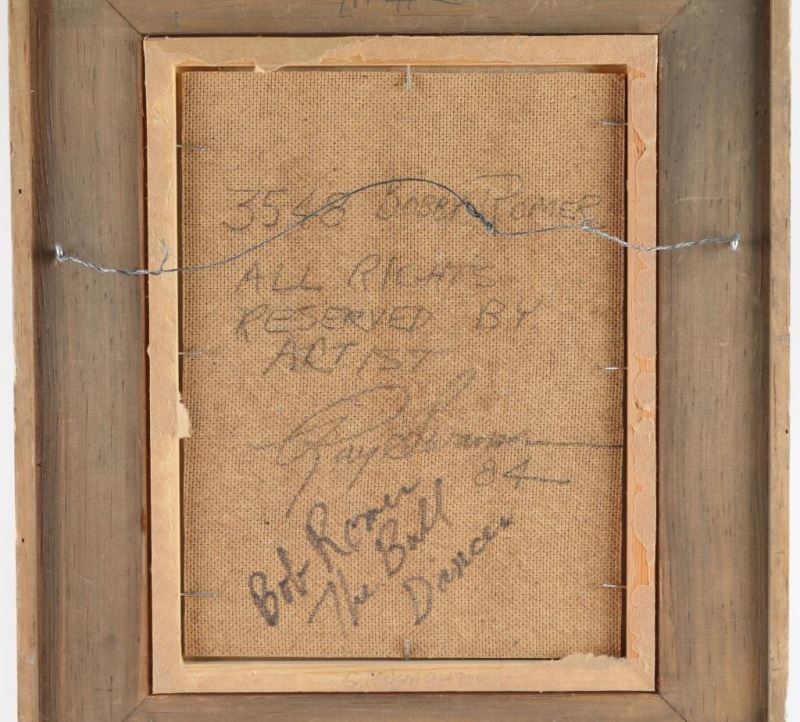 3548 BOBBY ROMER
ALL RIGHTS
RESERVED BY
ARTIST
Ray
84
Bob Romer
The Bull
Dancer